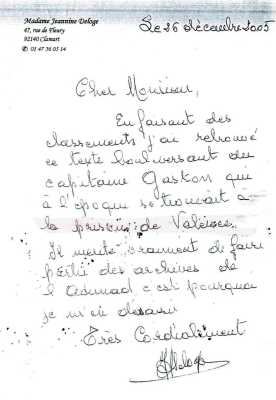 Madame Jeannine Deloge
47, rue de Fleury
92140 Clamart
✆ 01 47 36 05 14
Le 26 décembre 2005
Cher Monsieur,
En faisant des
classements j'ai retrouvé
ce texte bouleversant du
capitaine Gaston qui
à l'époque se trouvait à
la prison de Valence.
Il mérite vraiment de faire
partie des archives de
l'
c'est pourquoi
je m'en
Très Cordialement
JDeloge